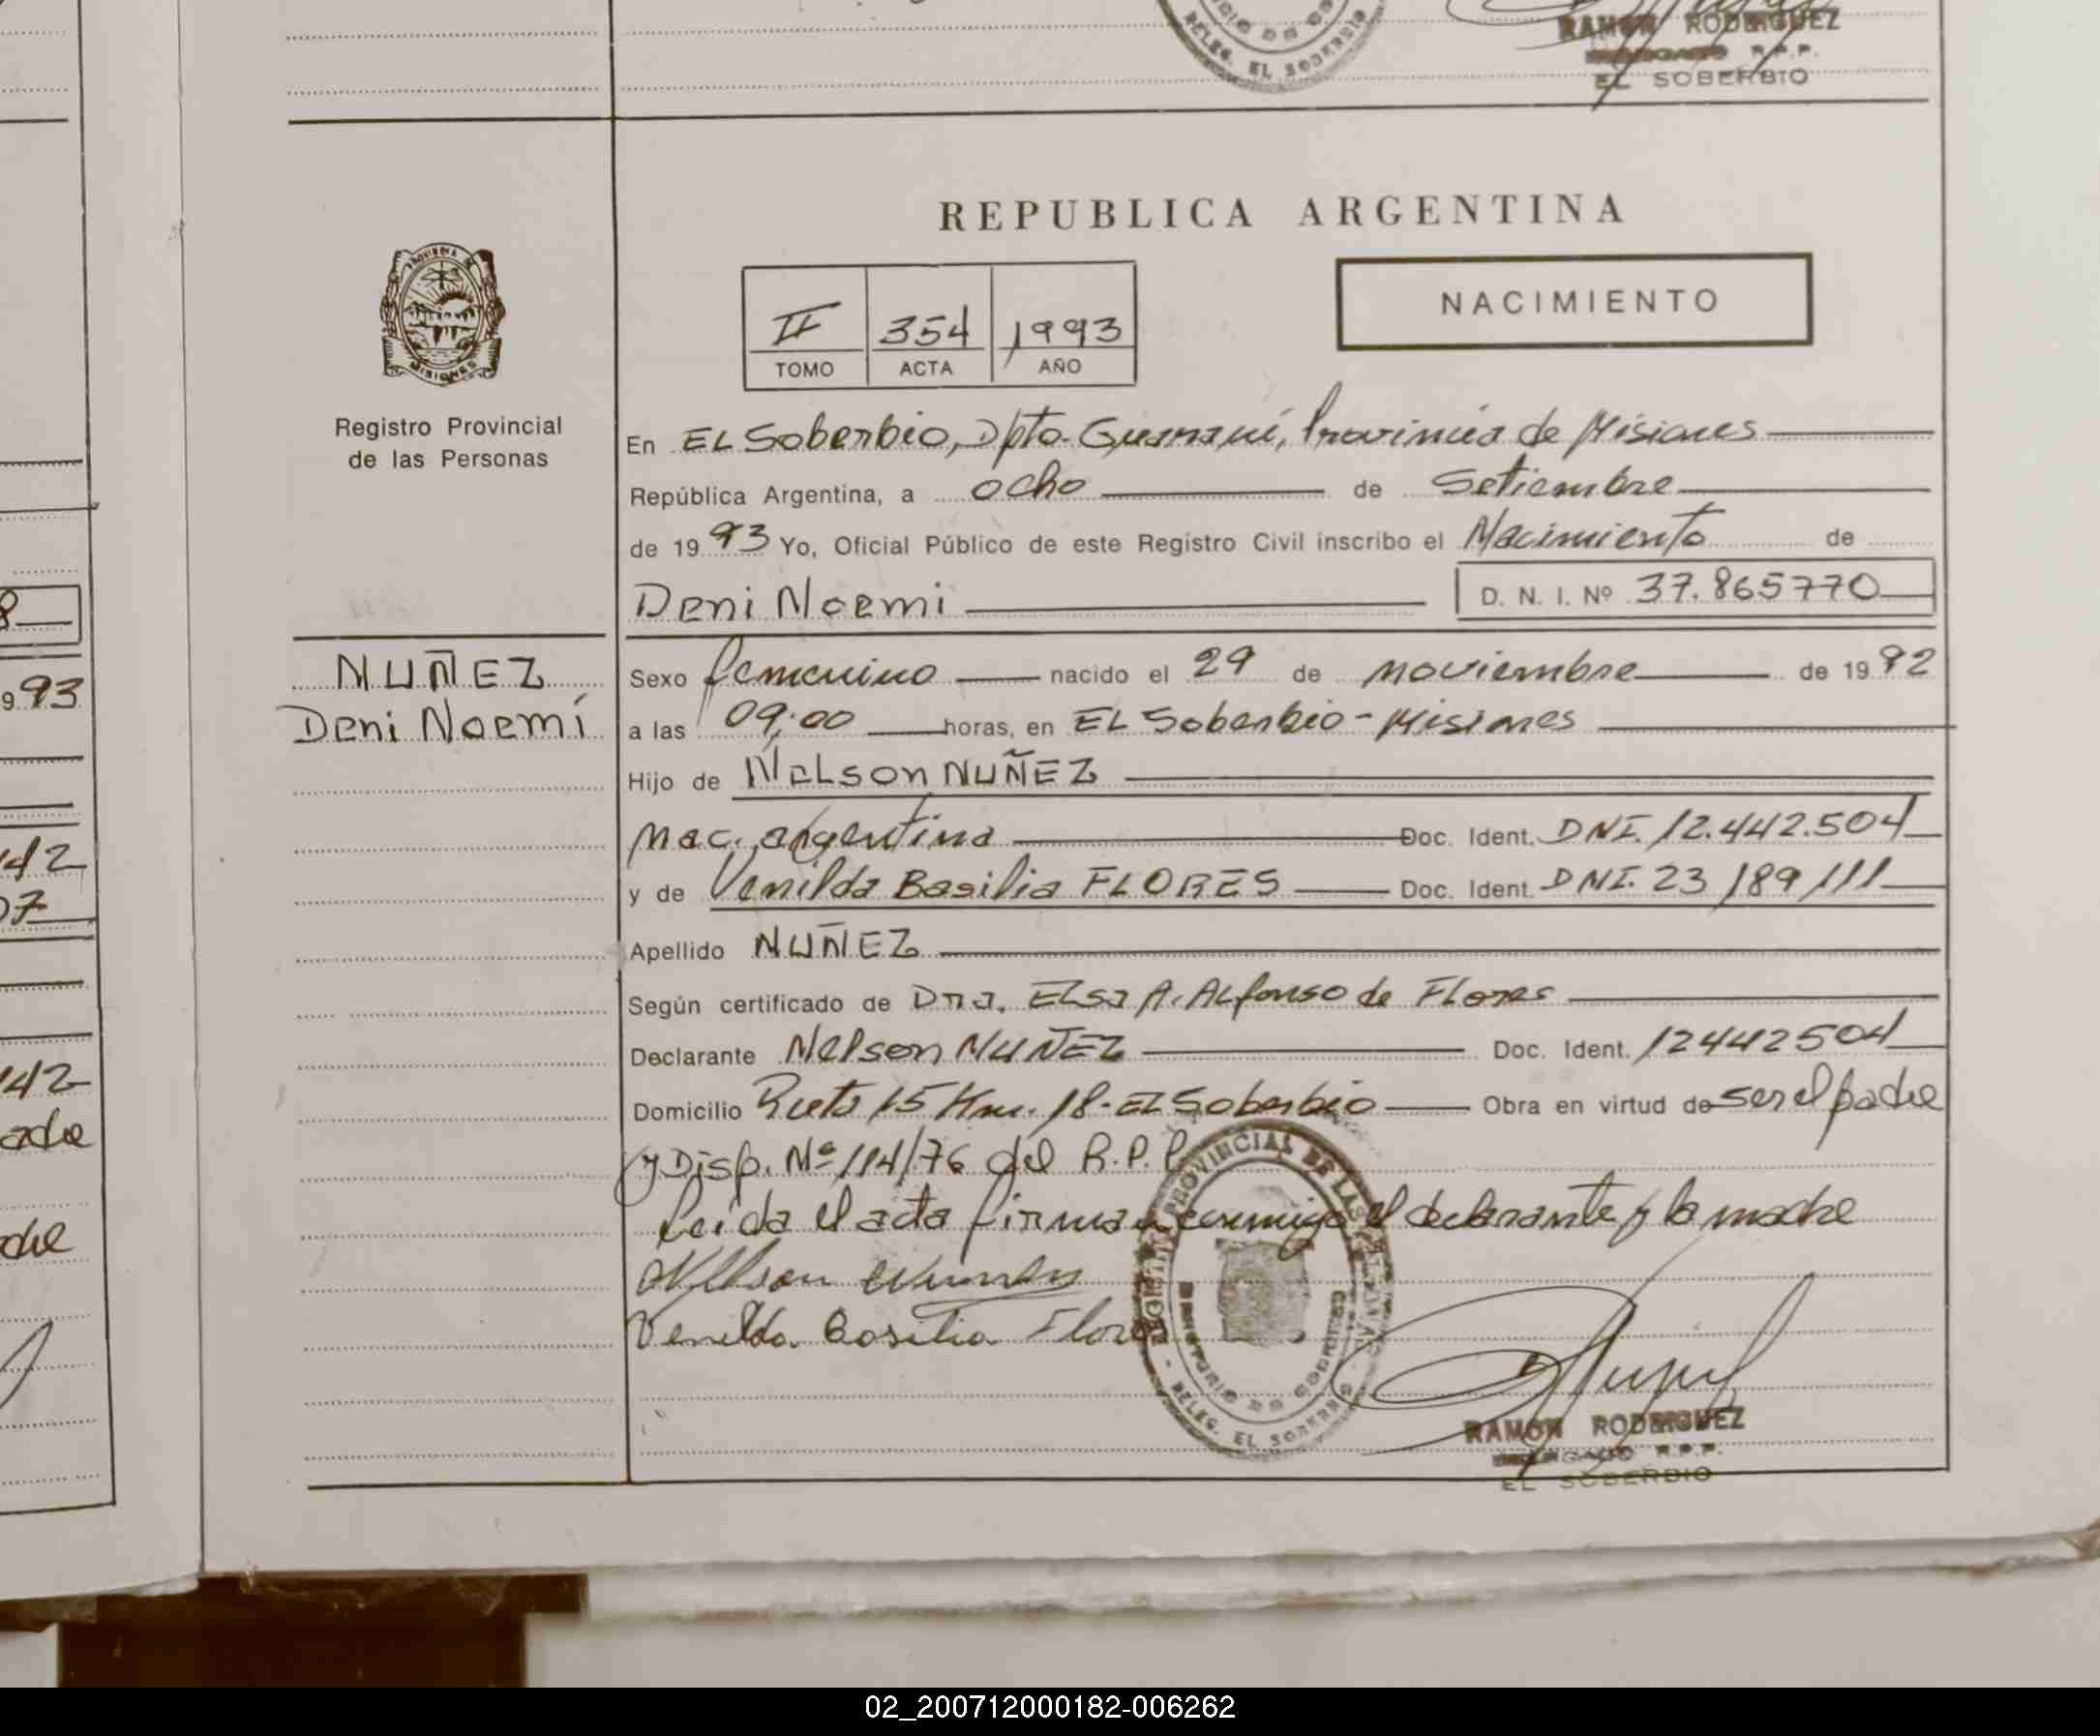 RAMON RODRIGUEZ
DELEGADO R.P.P.
EL SOBERBIO
DELEG. EL SOBERBIO
REPUBLICA ARGENTINA
PROVINCIA DE
MISIONES
II 354 1993
TOMO ACTA AÑO
NACIMIENTO
Registro Provincial
de las Personas
En EL Soberbio, Dpto. Guaraní, Provincia de Misiones
República Argentina, a ocho de Setiembre
de 1993 Yo, Oficial Público de este Registro Civil inscribo el Nacimiento de
Deni Noemi D. N. I. Nº 37.865770
NUÑEZ
Deni Noemí
Sexo femenino nacido el 29 de noviembre de 1992
a las 09:00 horas, en EL Soberbio - Misiones
Hijo de Nelson NUÑEZ
nac. argentina Doc. Ident. DNI. 12.442.504
y de Venilda Basilia FLORES Doc. Ident. DNI. 23189111
Apellido NUÑEZ
Según certificado de Dra. Elsa A. Alfonso de Flores
Declarante Nelson NUÑEZ Doc. Ident. 12442504
Domicilio Ruta 15 Km. 18 - EL Soberbio Obra en virtud de ser el padre
y Disp. Nº 114/76 del R.P.P.
Leída el acta firman conmigo el declarante y la madre
Venilda Basilia Flores
REGISTRO PROVINCIAL DE LAS PERSONAS
DELEG. EL SOBERBIO
RAMON RODRIGUEZ
DELEGADO R.P.P.
EL SOBERBIO
993
142
07
142
adre
dre
02_200712000182-006262